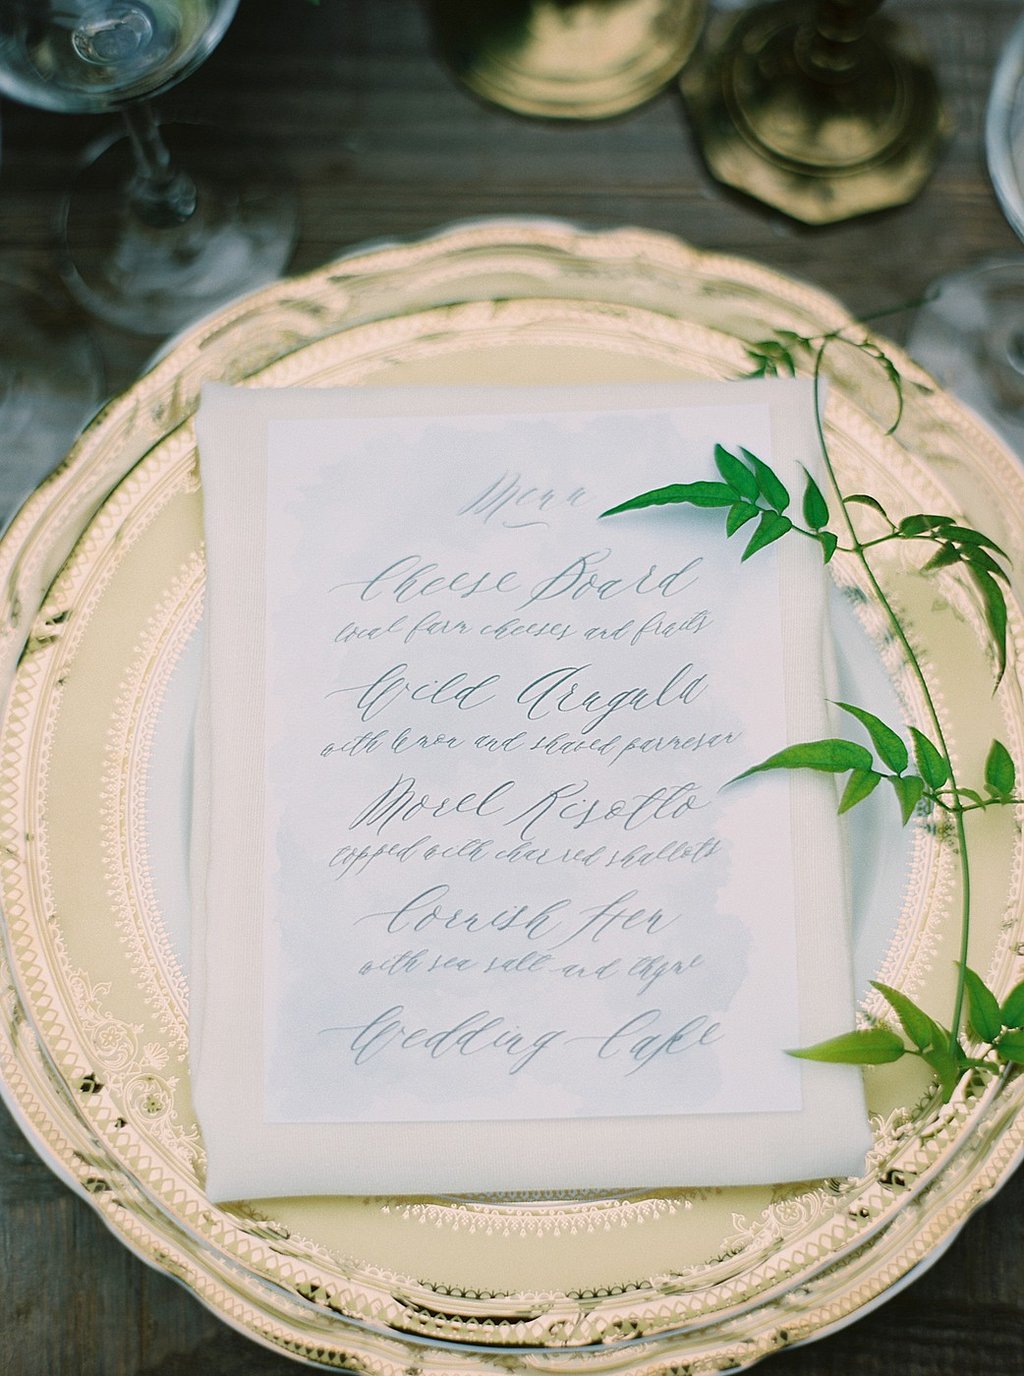 Menu
Cheese Board
local farm cheeses and fruits
Wild Arugula
with lemon and shaved parmesan
Morel Risotto
topped with charred shallots
Cornish Hen
with sea salt and thyme
Wedding Cake